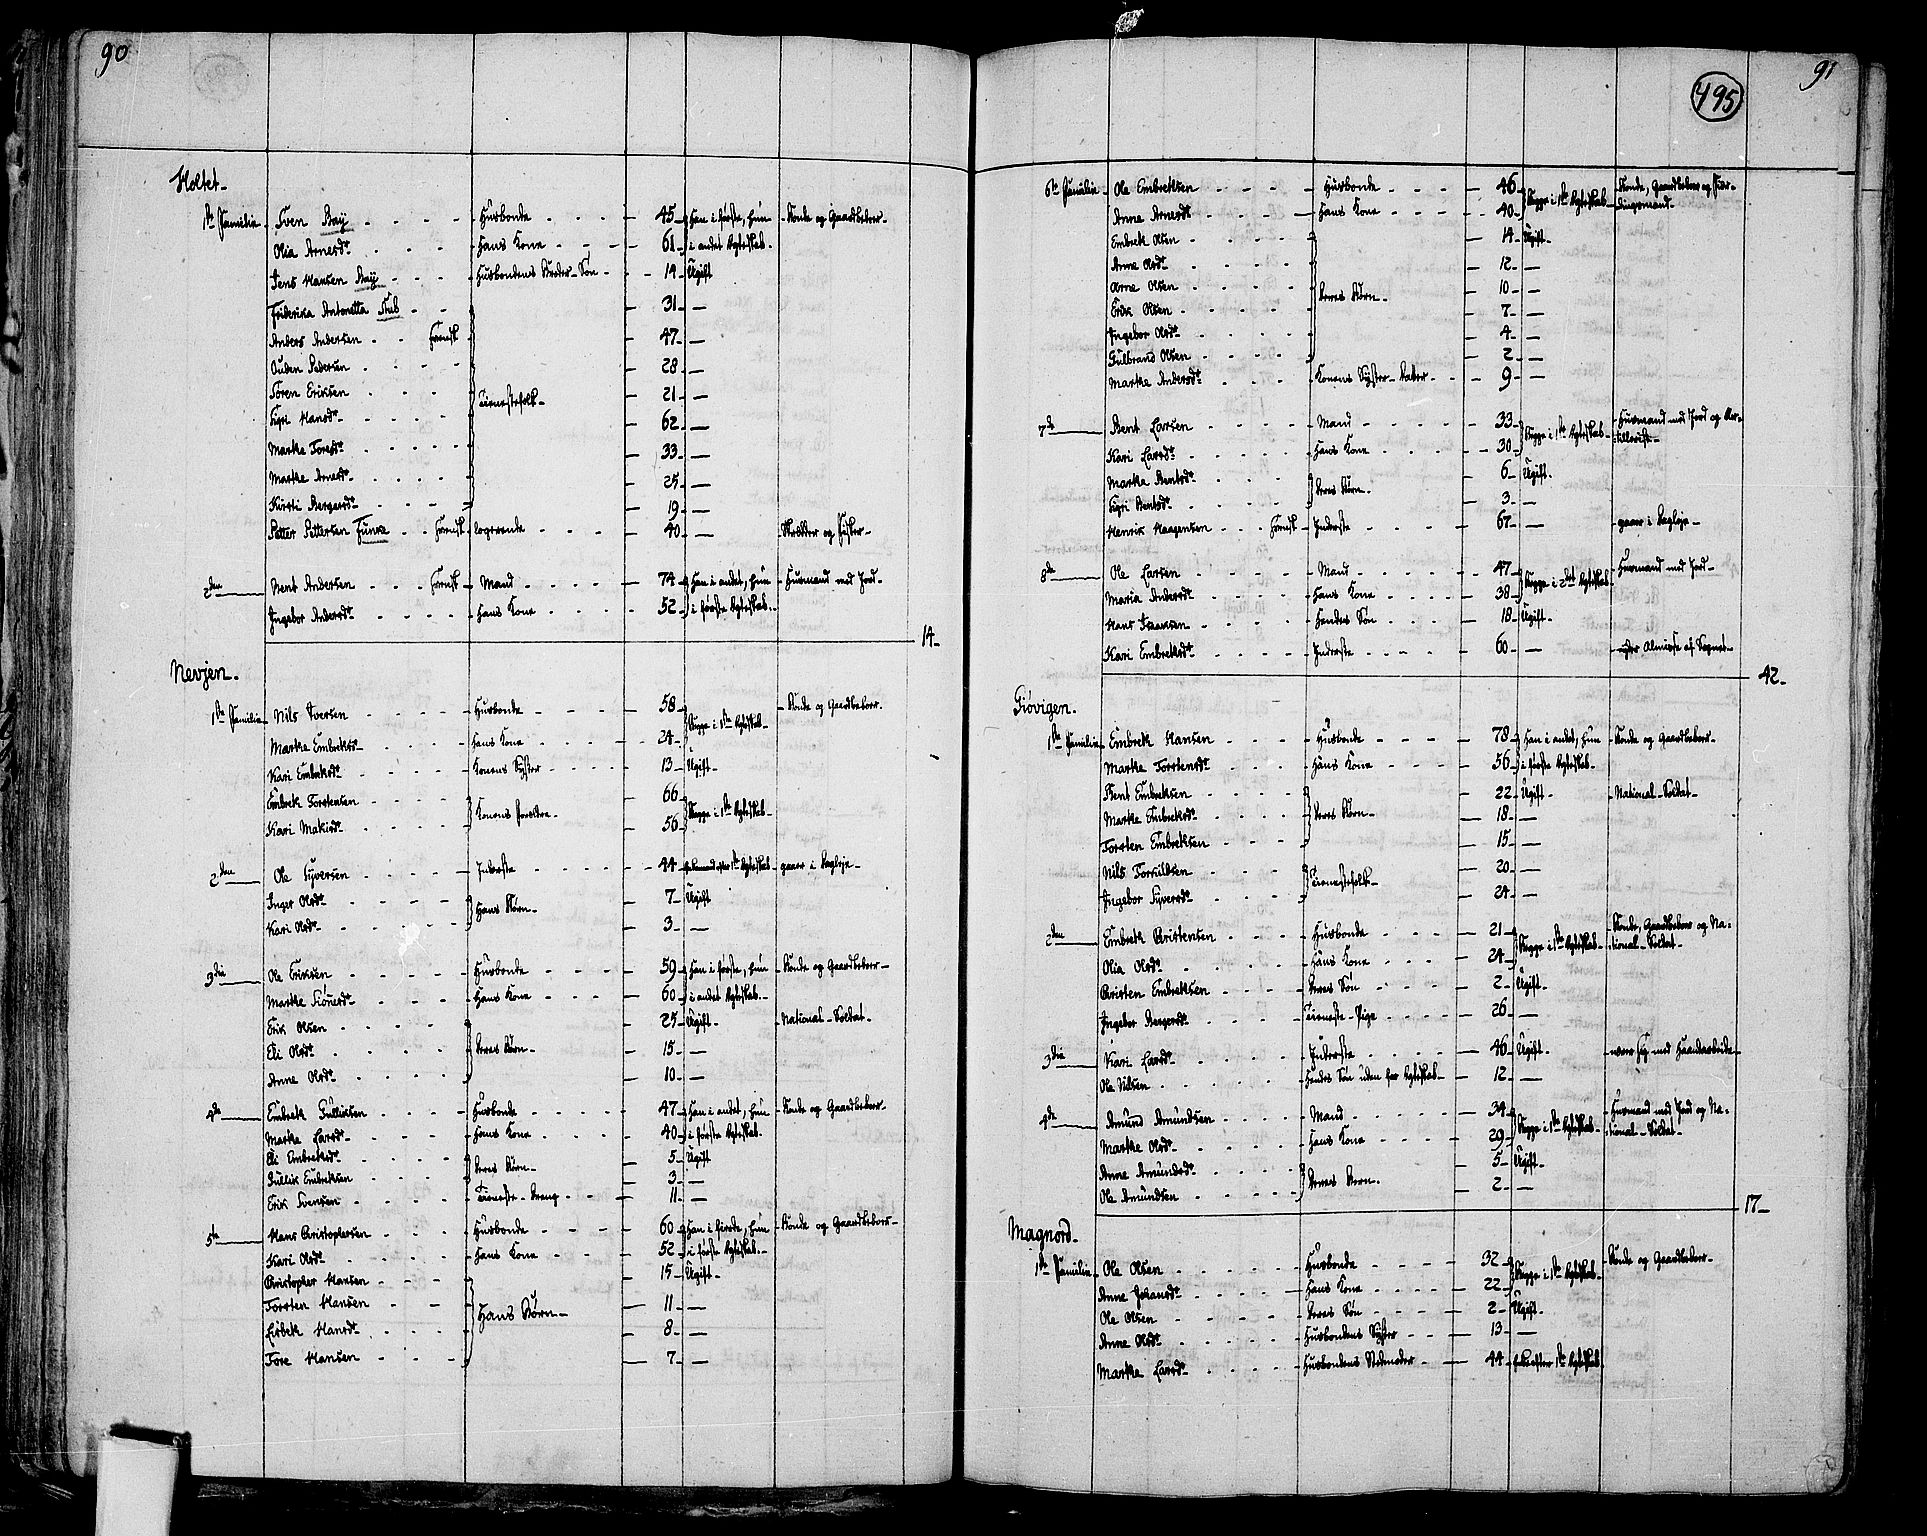 90
Holtet.
1ste Familie. Sven Bay Husbonde 45 Han i første, hun Bonde og Gaardbeboer.
Olia Arnesdr. Hans Kone 61 i andet Ægteskab.
Jens Hansen Bay Husbondens Broder-Søn 19 Ugift
Friderika Antonetta Stub 31 —
Anders Andersen 47 —
Ouden Pedersen 28 —
Søren Eriksen Tienestefolk. 21 —
Sigri Hansdr. 62 —
Marthe Toresdr. 33 —
Marthe Arnesdr. 25 —
Kirsti Bergersdr. 19 —
Petter Pettersen Funke logerende 40 — Skrædder og Fisker.
2den Bent Andersen Mand 74 Han i andet, hun Huusmand med Jord.
Ingebor Andersdr. Hans Kone 52 i første Ægteskab.
14.
Nevjen.
1ste Familie Nils Iversen Husbonde 58 Begge i 1ste Ægteskab. Bonde og Gaardbeboer.
Marthe Embretsdr. Hans Kone 24
Kari Embretsdr. Konens Syster 13 Ugift
Embret Torstensen Konens Forældre 66 Begge i 1ste Ægteskab
Kari Mathisdr. 56
2den Ole Syversen Inderste 44 Enkemand efter 1ste Ægteskab gaaer i Dagleje.
Inger Olsdr. Hans Børn. 7 Ugift
Kari Olsdr. 3 —
3die Ole Eriksen Husbonde 59 Han i første, hun Bonde og Gaardbeboer
Marthe Simensdr. Hans Kone 60 i andet Ægteskab.
Erik Olsen Deres Børn 25 Ugift. National-Soldat.
Eli Olsdr. 15 —
Anne Olsdr. 10 —
4de Embret Gulliksen Husbonde 47 Han i andet, hun Bonde og Gaardbeboer
Marthe Larsdr. Hans Kone 40 i første Ægteskab.
Eli Embretsdr. Deres Børn 5 Ugift
Gullik Embretsen 3 —
Erik Svensen Tieneste-Dreng 11 —
5te Hans Christophersen Husbonde 60 Han i fierde, hun Bonde og Gaardbeboer
Kari Olsdr. Hans Kone 52 i første Ægteskab.
Christopher Hansen Hans Børn 15 Ugift
Torsten Hansen 11 —
Lisbeth Hansdr. 8 —
Tore Hansen 7 —
91
495
6te Familie Ole Embretsen Husbonde 46 Begge i 1ste Ægteskab Bonde, Gaardbeboer og For-
Anne Arnesdr. Hans Kone 40 lingsmand.
Embret Olsen Deres Børn. 14 Ugift.
Anne Olsdr. 12 —
Arne Olsen 10 —
Erik Olsen 7 —
Ingebor Olsdr. 4 —
Gulbrand Olsen 2 —
Marthe Andersdr. Konens Syster-Datter 9 —
7de Bent Larsen Mand 33 Begge i 1ste Ægteskab Huusmand med Jord og Ar-
Kari Larsdr. Hans Kone 30 tillerist.
Marthe Bentsdr. Deres Børn. 6 Ugift.
Sigri Bentsdr. 3 —
Henrik Haagensen Inderste 67 — gaaer i Dagleje
8de Ole Larsen Mand 47 Begge i 2det Ægteskab Huusmand med Jord
Maria Andersdr. Hans Kone 38
Hans Isaacsen Hendes Søn 18 Ugift.
Kari Embretsdr. Inderste 60 — nyder Almisse af Sognet.
42.
Giøvigen.
1ste Familie Embret Hansen Husbonde 78 Han i andet, hun Bonde og Gaardbeboer.
Marthe Torstensdr. Hans Kone 56 i første Ægteskab.
Bent Embretsen Deres Børn 22 Ugift. National-Soldat.
Marthe Embretsdr. 18 —
Torsten Embretsen 15 —
Nils Torkildsen Tienestefolk. 20 —
Ingebor Syversdr. 24 —
2den Embret Christensen Husbonde 21 Begge i 1ste Ægteskab Bonde, Gaardbeboer og Na-
Olia Olsdr. Hans Kone 24 tional-Soldat.
Christen Embretsen Deres Søn 2 Ugift.
Ingebor Bergersdr. Tieneste-Pige 26 —
3die Kari Larsdr. Inderste 46 Ugift. nærer sig med Haandarbeide
Ole Nilsen Hendes Søn uden for Ægteskab 12 —
4de Amund Amundsen Mand 34 Begge i 1ste Ægteskab Huusmand med Jord og Na-
Marthe Olsdr. Hans Kone 29 tional-Soldat.
Anne Amundsdr. Deres Børn. 5 Ugift.
Ole Amundsen 2 —
17
Magnord.
1ste Familie Ole Olsen Husbonde 32 Begge i 1ste Ægteskab Bonde og Gaardbeboer
Anne Johansdr. Hans Kone 22
Ole Olsen Deres Søn 2 Ugift.
Anne Olsdr. Husbondens Syster 13 —
Marthe Larsdr. Husbondens Stedmoder 44 Enke efter 1ste Ægteskab